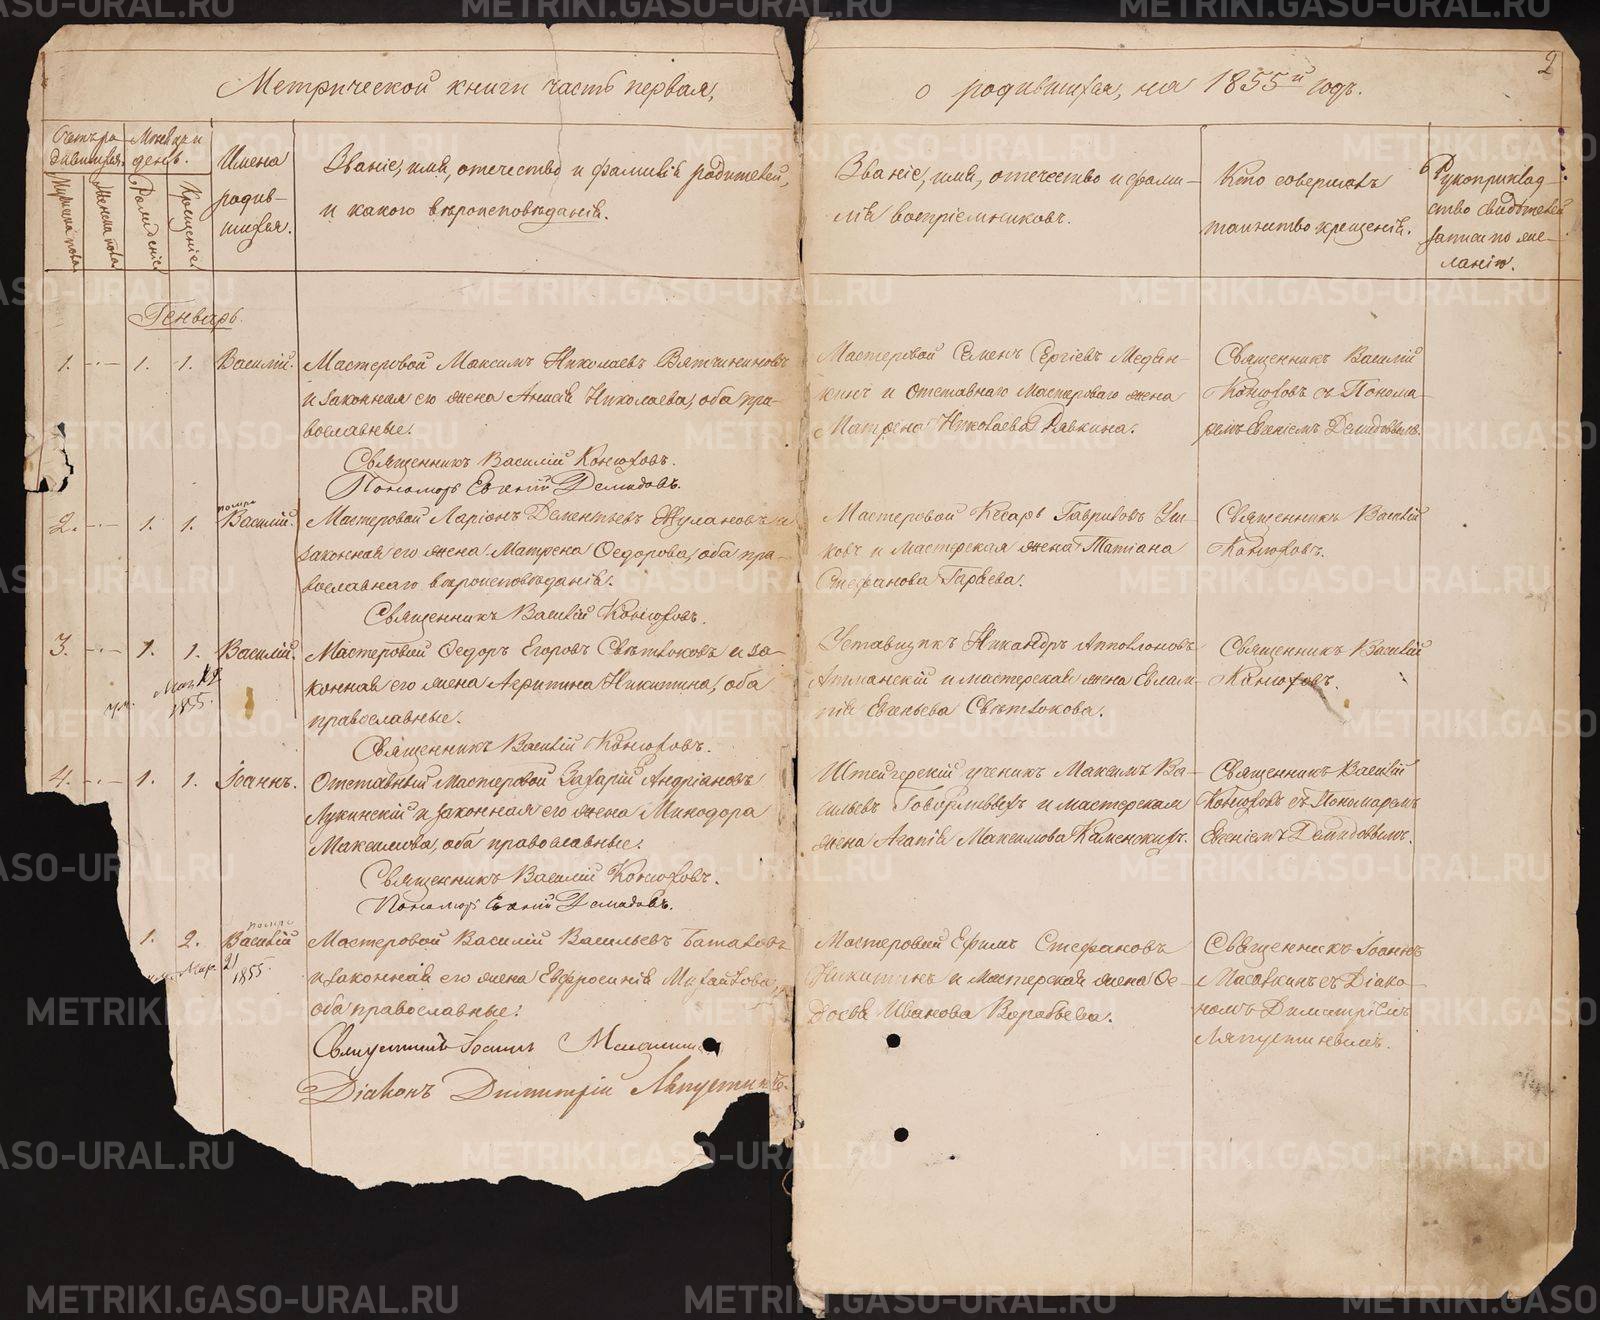 2
Метрической книги часть первая, о родившихся, на 1855й годъ.
Счетъ ро-
дившихся.
Мужеска пола
Женска пола
Мѣсяцъ и
день.
Рожденіе
Крещеніе
Имена
родив-
шихся.
Званіе, имя, отечество и фамилій родителей,
и какого вѣроисповѣданія.
Званіе, имя, отечество и фами-
лія воспріемниковъ.
Кто совершалъ
таинство крещенія.
Рукоприклад-
ство свидѣтелей
записи по же-
ланію.
Генварь.
1. 1. 1. Василій.
Мастеровой Максимъ Николаевъ Вятчининовъ
и законная его жена Анисія Николаева, оба пра-
вославные.
Священникъ Василій Конюховъ.
Пономарь Евгеній Демидовъ.
Мастеровой Семенъ Сергіевъ Медян-
кинъ и Отставнаго Мастероваго жена
Матрена Николаева Рявкина.
Священникъ Василій
Конюховъ съ Понома-
ремъ Евгеніемъ Демидовымъ.
2. 1. 1. Василій.
Мастеровой Ларіонъ Дементьевъ Жулановъ и
законная его жена Матрена Ѳедорова, оба пра-
вославнаго вѣроисповѣданія.
Священникъ Василій Конюховъ.
Мастеровой Кесарь Гавриловъ Уш-
ковъ и Мастерская жена Татіана
Стефанова Гаряева.
Священникъ Василій
Конюховъ.
3. 1. 1. Василій.
1855.
Мастеровой Ѳедоръ Егоровъ Свѣтлоковъ и за-
конная его жена Агрипина Никитина, оба
православные.
Священникъ Василій Конюховъ.
Уставщикъ Никандръ Апполоновъ
Атманскій и мастерская жена Евлам-
пія Евгеньева Свѣтлокова.
Священникъ Василій
Конюховъ.
4. 1. 1. Іоаннъ.
Отставный Мастеровой Захарій Андріановъ
Лукинскій и законная его жена Минодора
Максимова, оба православные.
Священникъ Василій Конюховъ.
Пономарь Евгеній Демидовъ.
Штейгерскій ученикъ Максимъ Ва-
сильевъ и мастерская
жена Агапія Максимова Каменскихъ.
Священникъ Василій
Конюховъ съ Пономаремъ
Евгеніемъ Демидовымъ.
1. 2. Василій
Мар. 21
1855.
Мастеровой Василій Васильевъ Баталовъ
и законная его жена Евфросинія Михайлова,
оба православные.
Священникъ Іоаннъ
Діаконъ Димитрій Ляпустинъ.
Мастеровой Ефимъ Стефановъ
Никитинъ и Мастерская жена Ѳе-
досья Иванова Воробьева.
Священникъ Іоаннъ
съ Діако-
номъ Димитріемъ
Ляпустинымъ.
METRIKI.GASO-URAL.RU